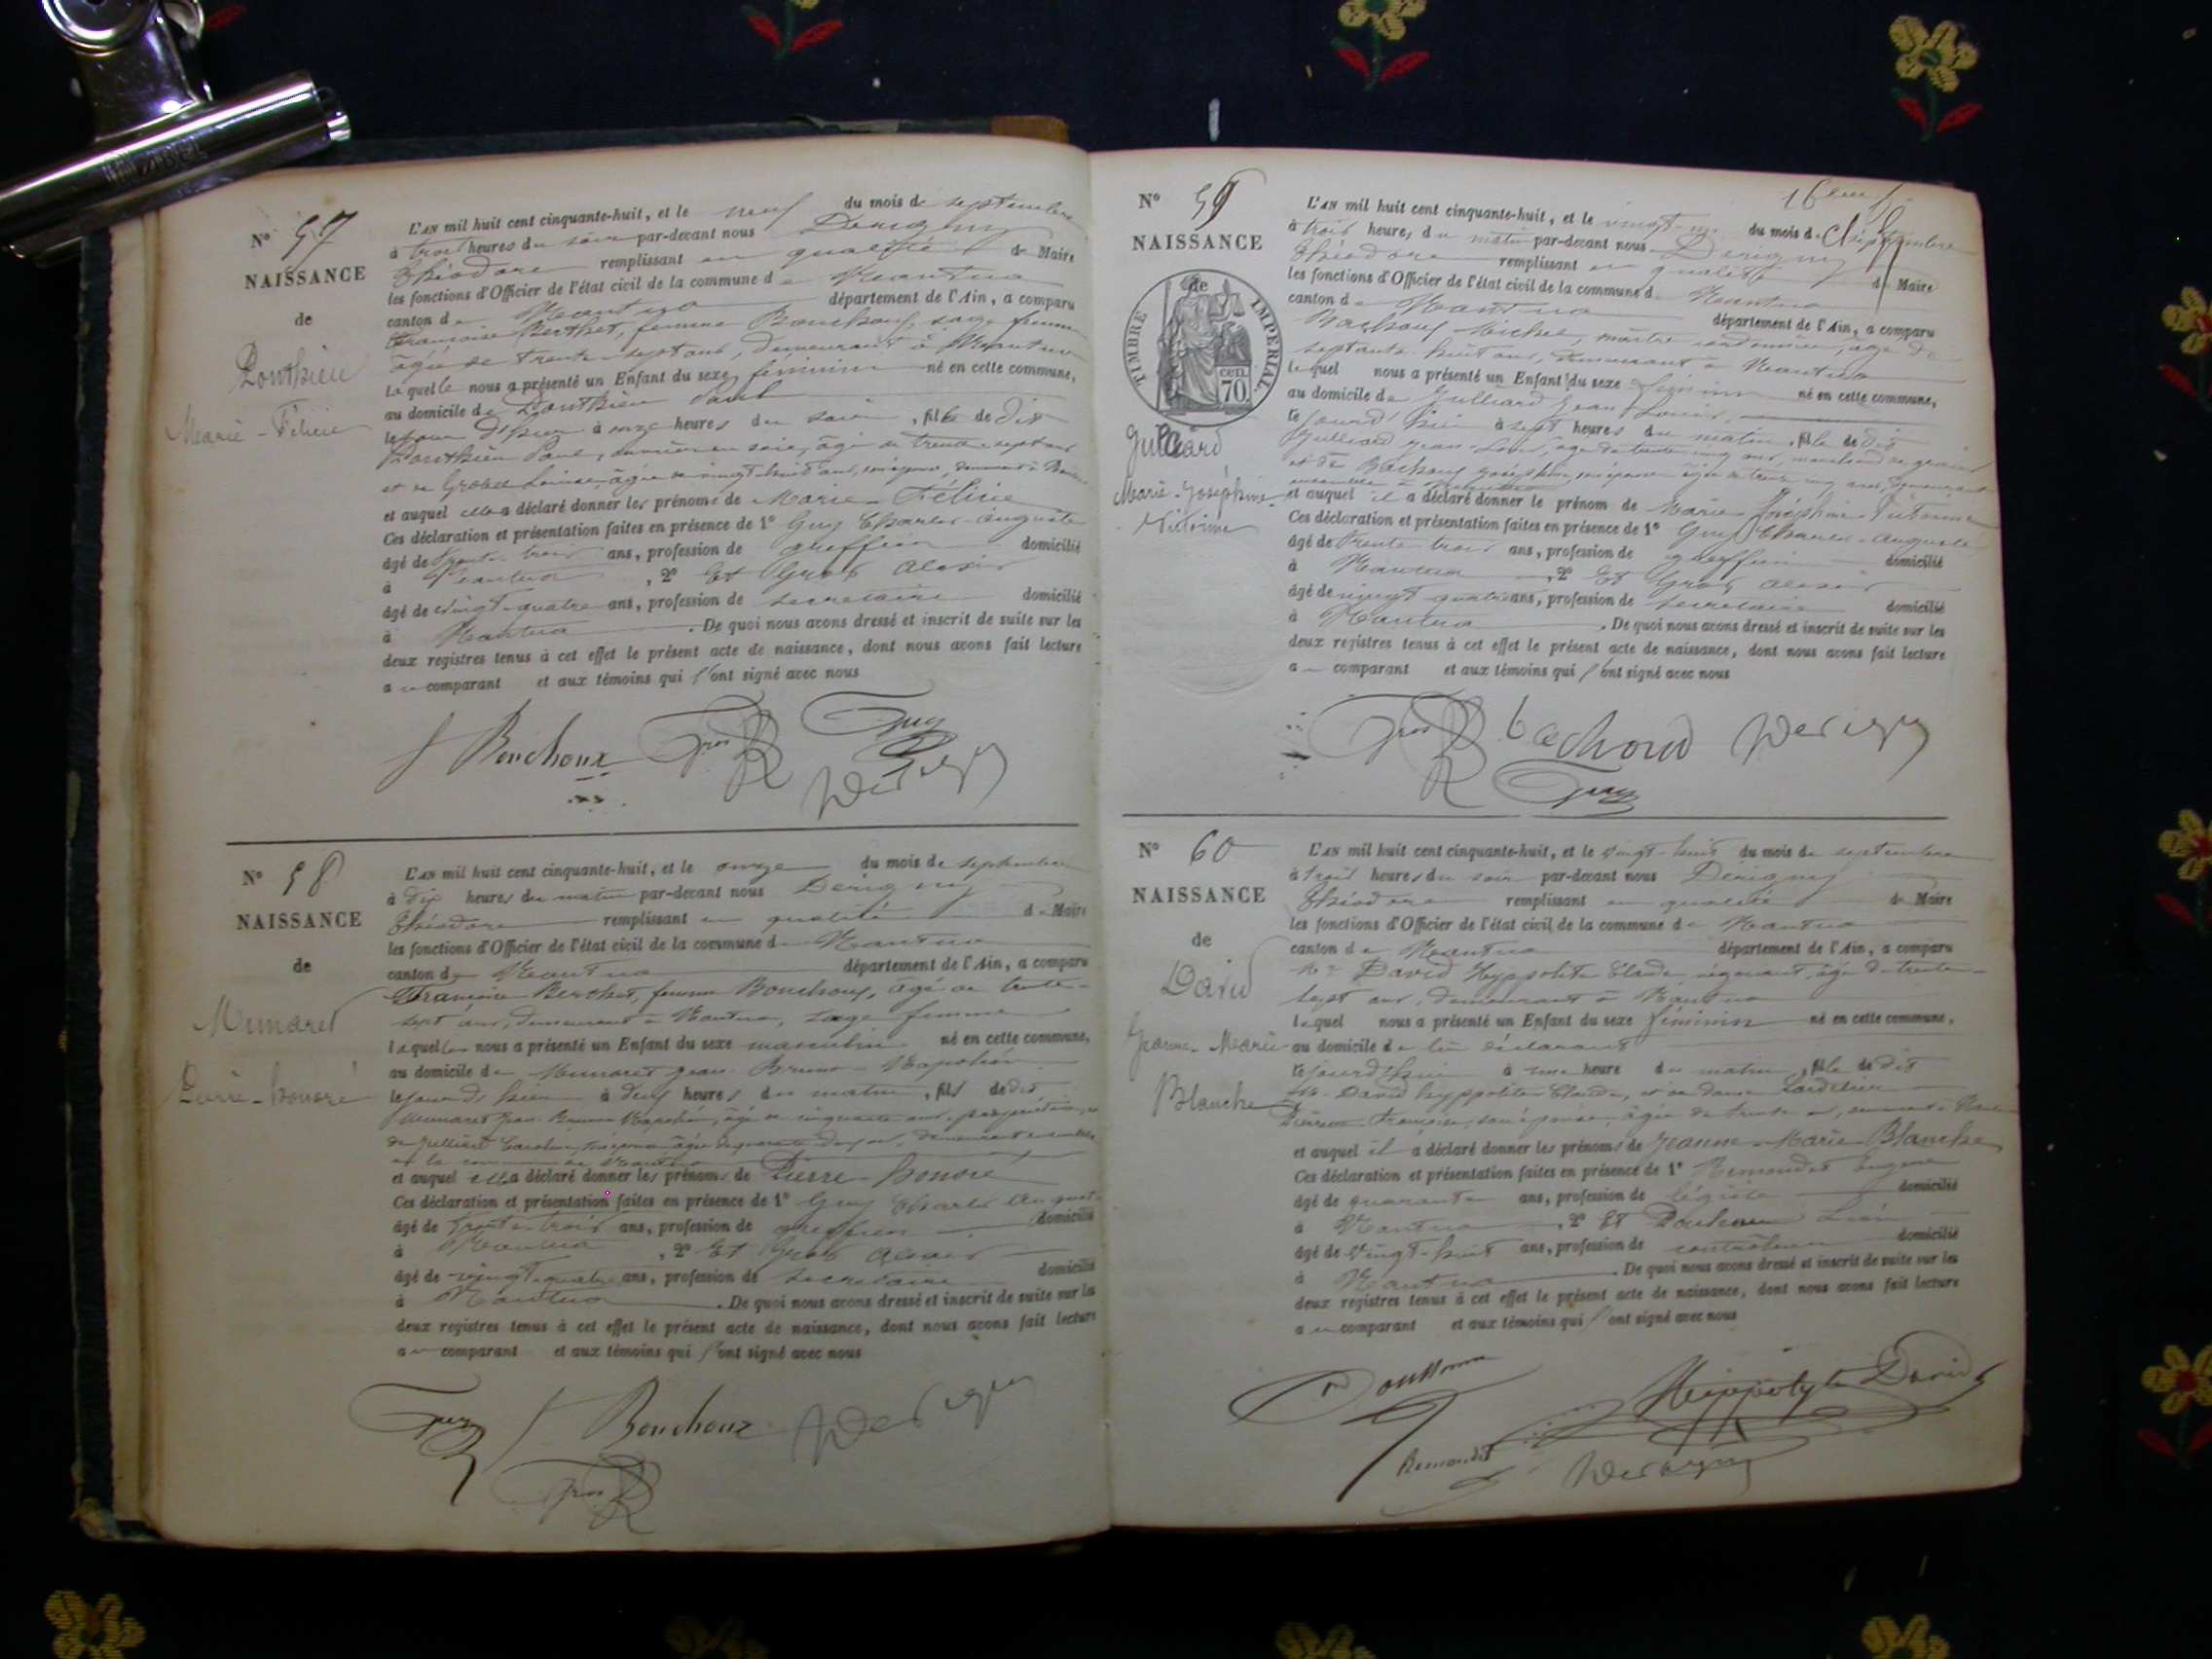 N° 57
NAISSANCE
de
Ponthieu
Marie-Félicie
L'AN mil huit cent cinquante-huit, et le neuf du mois de septembre
à trois heures du soir par-devant nous Derigny
Théodore remplissant en qualité de Maire
les fonctions d'Officier de l'état civil de la commune de Nantua
canton de Nantua département de l'Ain, a comparu
Françoise Berthet, femme Bouchoux, sage femme
âgée de trente-sept ans, demeurant à Nantua
laquelle nous a présenté un Enfant du sexe féminin né en cette commune,
au domicile de Ponthieu Paul
le jour d'hier à onze heures du soir, fille de dit
Ponthieu Paul, ouvrier en soie, âgé de trente-sept ans
et de Louise, âgée de vingt-huit ans, son épouse, demeurant à
et auquel elle a déclaré donner les prénoms de Marie-Félicie
Ces déclaration et présentation faites en présence de 1° Guy Charles-Auguste
âgé de trente-trois ans, profession de greffier domicilié
à Nantua, 2° Et Gros Alexis
âgé de vingt-quatre ans, profession de secrétaire domicilié
à Nantua. De quoi nous avons dressé et inscrit de suite sur les
deux registres tenus à cet effet le présent acte de naissance, dont nous avons fait lecture
a comparant et aux témoins qui l'ont signé avec nous
f Bouchoux Gros Guy
Derigny
N° 58
NAISSANCE
de
Munaret
Pierre-honoré
L'AN mil huit cent cinquante-huit, et le onze du mois de septembre
à dix heures du matin par-devant nous Derigny
Théodore remplissant en qualité de Maire
les fonctions d'Officier de l'état civil de la commune de Nantua
canton de Nantua département de l'Ain, a comparu
Françoise Berthet, femme Bouchoux, âgée de trente-
sept ans, demeurant à Nantua, sage femme
laquelle nous a présenté un Enfant du sexe masculin né en cette commune,
au domicile de Munaret Jean-Bruno-Napoléon
le jour d'hier à deux heures du matin, fils de dit
Munaret Jean-Bruno-Napoléon, âgé de cinquante ans, propriétaire, et
de Caroline, son épouse âgée de quarante ans, demeurant ensemble
en la commune de Nantua
et auquel elle a déclaré donner les prénoms de Pierre-honoré
Ces déclaration et présentation faites en présence de 1° Guy Charles August.
âgé de trente-trois ans, profession de greffier domicilié
à Nantua, 2° Et Gros Alexis
âgé de vingt-quatre ans, profession de secrétaire domicilié
à Nantua. De quoi nous avons dressé et inscrit de suite sur les
deux registres tenus à cet effet le présent acte de naissance, dont nous avons fait lecture
a comparant et aux témoins qui l'ont signé avec nous
Guy f Bouchoux Derigny
Gros
N° 59
NAISSANCE
de
TIMBRE IMPÉRIAL
70 cen.
Julliard
Marie-Joséphine-
Victorine
L'AN mil huit cent cinquante-huit, et le vingt-un du mois de septembre
à trois heures du matin par-devant nous Derigny
Théodore remplissant en qualité de Maire
les fonctions d'Officier de l'état civil de la commune de Nantua
canton de Nantua département de l'Ain, a comparu
Bachoux Michel, maître cordonnier, âgé de
septante-huit ans, demeurant à Nantua
lequel nous a présenté un Enfant du sexe féminin né en cette commune,
au domicile de Julliard Jean-Louis,
le jourd'hui à sept heures du matin, fille de dit
Julliard Jean-Louis, âgé de trente cinq ans, marchand de grains
et de Bachoux Joséphine, son épouse âgée de trente cinq ans, demeurant
ensemble à
et auquel il a déclaré donner le prénom de Marie-Joséphine-Victorine
Ces déclaration et présentation faites en présence de 1° Guy Charles-Auguste
âgé de trente-trois ans, profession de greffier domicilié
à Nantua, 2° Et Gros Alexis
âgé de vingt-quatre ans, profession de secrétaire domicilié
à Nantua. De quoi nous avons dressé et inscrit de suite sur les
deux registres tenus à cet effet le présent acte de naissance, dont nous avons fait lecture
a comparant et aux témoins qui l'ont signé avec nous
Gros bachoud Derigny
Guy
N° 60
NAISSANCE
de
David
Jeanne-Marie
Blanche
L'AN mil huit cent cinquante-huit, et le vingt-huit du mois de septembre
à trois heures du soir par-devant nous Derigny
Théodore remplissant en qualité de Maire
les fonctions d'Officier de l'état civil de la commune de Nantua
canton de Nantua département de l'Ain, a comparu
Mr David Hyppolite Claude, négociant, âgé de trente-
sept ans, demeurant à Nantua
lequel nous a présenté un Enfant du sexe féminin né en cette commune,
au domicile de lui déclarant
le jourd'hui à une heure du matin, fille de dit
Mr David hyppolite-Claude, et de dame
Françoise, son épouse, âgée de trente ans, demeurant à Nantua
et auquel il a déclaré donner les prénoms de Jeanne-Marie-Blanche
Ces déclaration et présentation faites en présence de 1° Remondet Eugène
âgé de quarante ans, profession de légiste domicilié
à Nantua, 2° Et Léon
âgé de vingt-huit ans, profession de contrôleur domicilié
à Nantua. De quoi nous avons dressé et inscrit de suite sur les
deux registres tenus à cet effet le présent acte de naissance, dont nous avons fait lecture
a comparant et aux témoins qui l'ont signé avec nous
Hippolyte David
Remondet Derigny